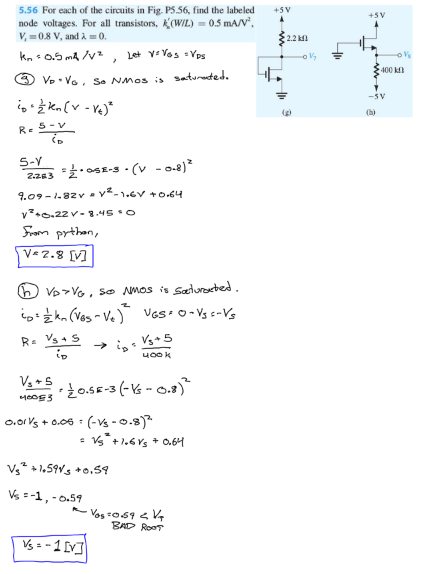 5.56 For each of the circuits in Fig. P5.56, find the labeled
node voltages. For all transistors, k′n(W/L) = 0.5 mA/V²,
Vt = 0.8 V, and λ = 0.
+5 V
2.2 kΩ
V7
(g)
+5 V
V8
400 kΩ
−5 V
(h)
kn = 0.5 mA/V² , Let V=VGS=VDS
(g) VD=VG, so NMOS is saturated.
iD = ½ kn (V - Vt)²
R = (5 - V)/iD
(5-V)/2.2E3 = ½ · 0.5E-3 · (V - 0.8)²
9.09 - 1.82V = V² - 1.6V + 0.64
V² + 0.22V - 8.45 = 0
From python,
V = 2.8 [V]
(h) VD > VG, so NMOS is saturated.
iD = ½ kn (VGS - Vt)² VGS = 0 - VS = -VS
R = (VS + 5)/iD → iD = (VS + 5)/400k
(VS + 5)/400E3 = ½ 0.5E-3 (-VS - 0.8)²
0.01VS + 0.05 = (-VS - 0.8)²
= VS² + 1.6VS + 0.64
VS² + 1.59VS + 0.59
VS = -1, -0.59
VGS = 0.59 < VT
BAD ROOT
VS = -1 [V]